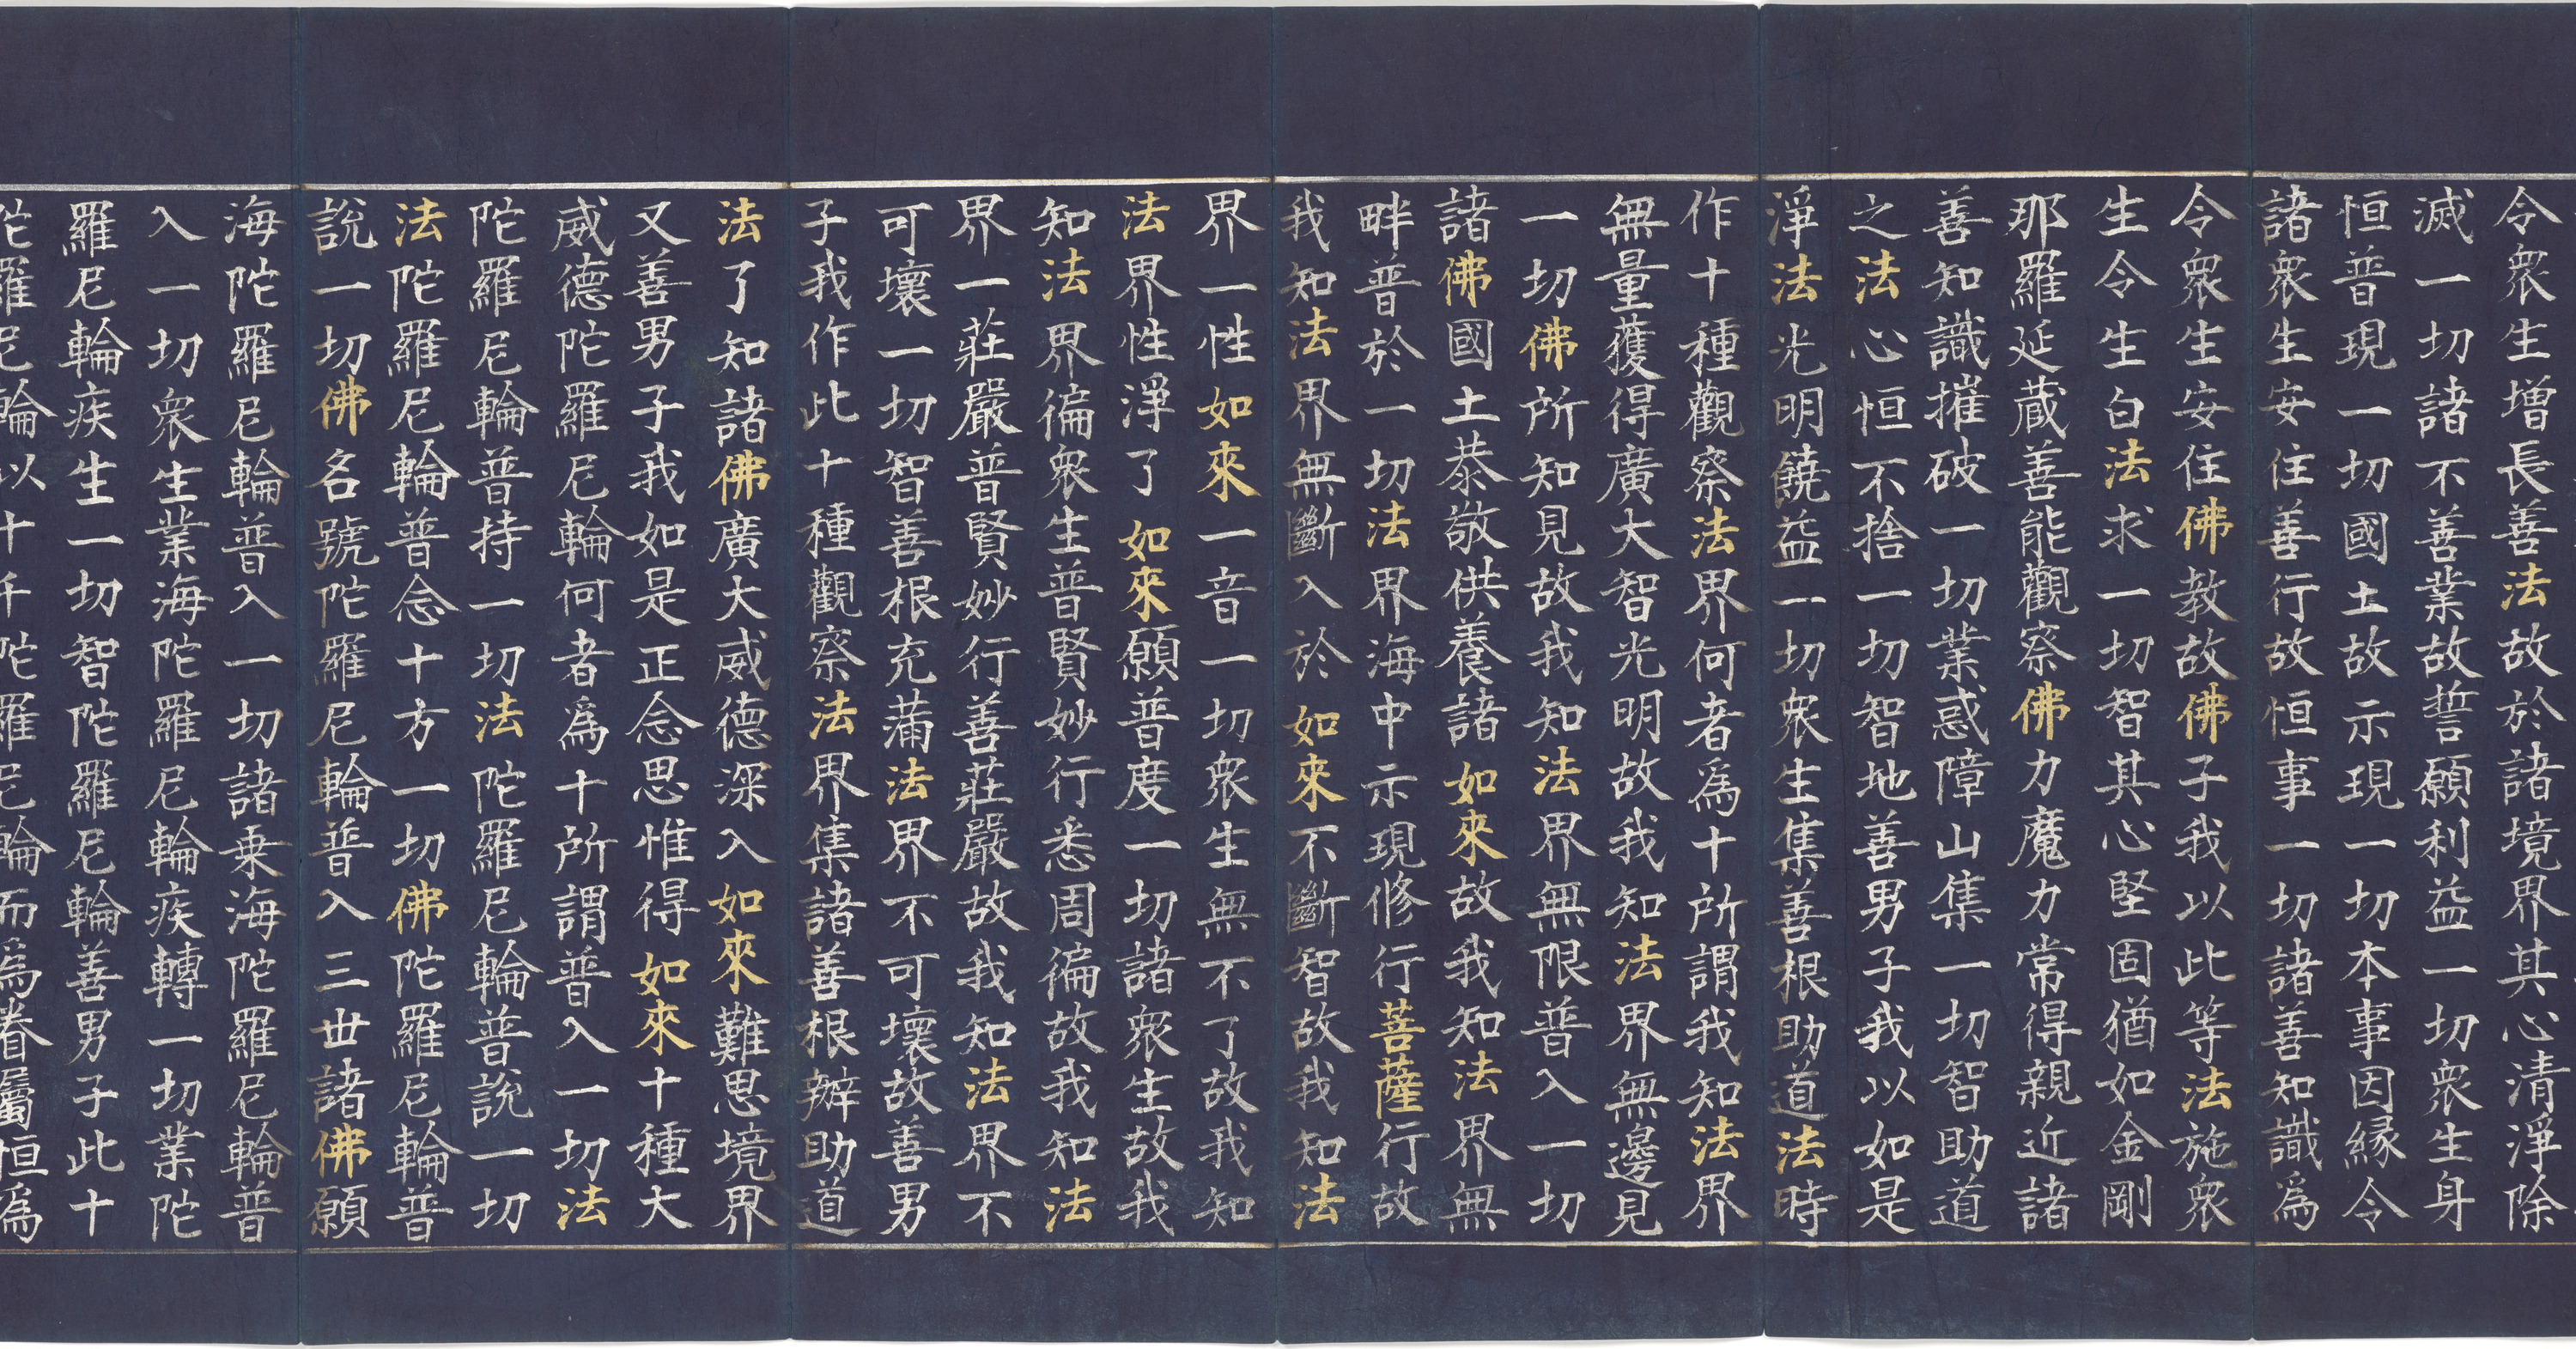 令衆生增長善法故於諸境界其心清淨除
滅一切諸不善業故誓願利益一切衆生身
恒普現一切國土故示現一切本事因縁令
諸衆生安住善行故恒事一切諸善知識爲
令衆生安住佛教故佛子我以此等法施衆
生令生白法求一切智其心堅固猶如金剛
那羅延藏善能觀察佛力魔力常得親近諸
善知識摧破一切業惑障山集一切智助道
之法心恒不捨一切智地善男子我以如是
淨法光明饒益一切衆生集善根助道法時
作十種觀察法界何者爲十所謂我知法界
無量獲得廣大智光明故我知法界無邊見
一切佛所知見故我知法界無限普入一切
諸佛國土恭敬供養諸如來故我知法界無
畔普於一切法界海中示現修行菩薩行故
我知法界無斷入於如來不斷智故我知法
界一性如來一音一切衆生無不了故我知
法界性淨了如來願普度一切諸衆生故我
知法界徧衆生普賢妙行悉周徧故我知法
界一莊嚴普賢妙行善莊嚴故我知法界不
可壞一切智善根充蒲法界不可壞故善男
子我作此十種觀察法界集諸善根辦助道
法了知諸佛廣大威德深入如來難思境界
又善男子我如是正念思惟得如來十種大
威德陀羅尼輪何者爲十所謂普入一切法
陀羅尼輪普持一切法陀羅尼輪普說一切
法陀羅尼輪普念十方一切佛陀羅尼輪普
說一切佛名號陀羅尼輪普入三世諸佛願
海陀羅尼輪普入一切諸乗海陀羅尼輪普
入一切衆生業海陀羅尼輪疾轉一切業陀
羅尼輪疾生一切智陀羅尼輪善男子此十
陀羅尼輪以十千陀羅尼輪而爲眷屬恒爲